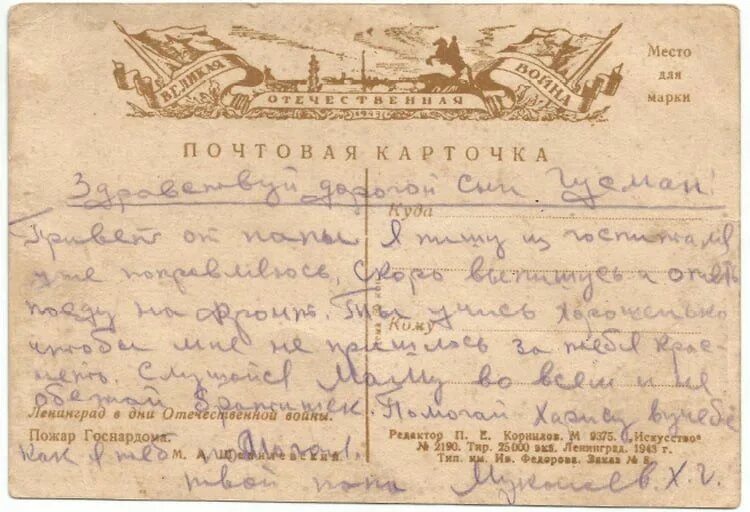 ВЕЛИКАЯ
ОТЕЧЕСТВЕННАЯ
ВОЙНА
1943
Место
для
марки
ПОЧТОВАЯ КАРТОЧКА
Здравствуй дорогой сын Гусман!
Куда
Привет от папы Я пишу из госпиталя
уже поправляюсь, скоро выпишусь и опять
поеду на фронт. Ты учись хорошенько
Кому
чтобы мне не пришлось за тебя крас-
неть. Слушайся маму во всем и не
обежай братишек. Помогай Харису в учебе
Ленинград в дни Отечественной войны.
Пожар Госнардома.
М. А.
Редактор П. Е. Корнилов. М 9375. „Искусство"
№ 2190. Тир. 25000 экз. Ленинград. 1943 г.
Тип. им. Ив. Федорова. Заказ № 8
как я тебе
твой папа Х. Г.